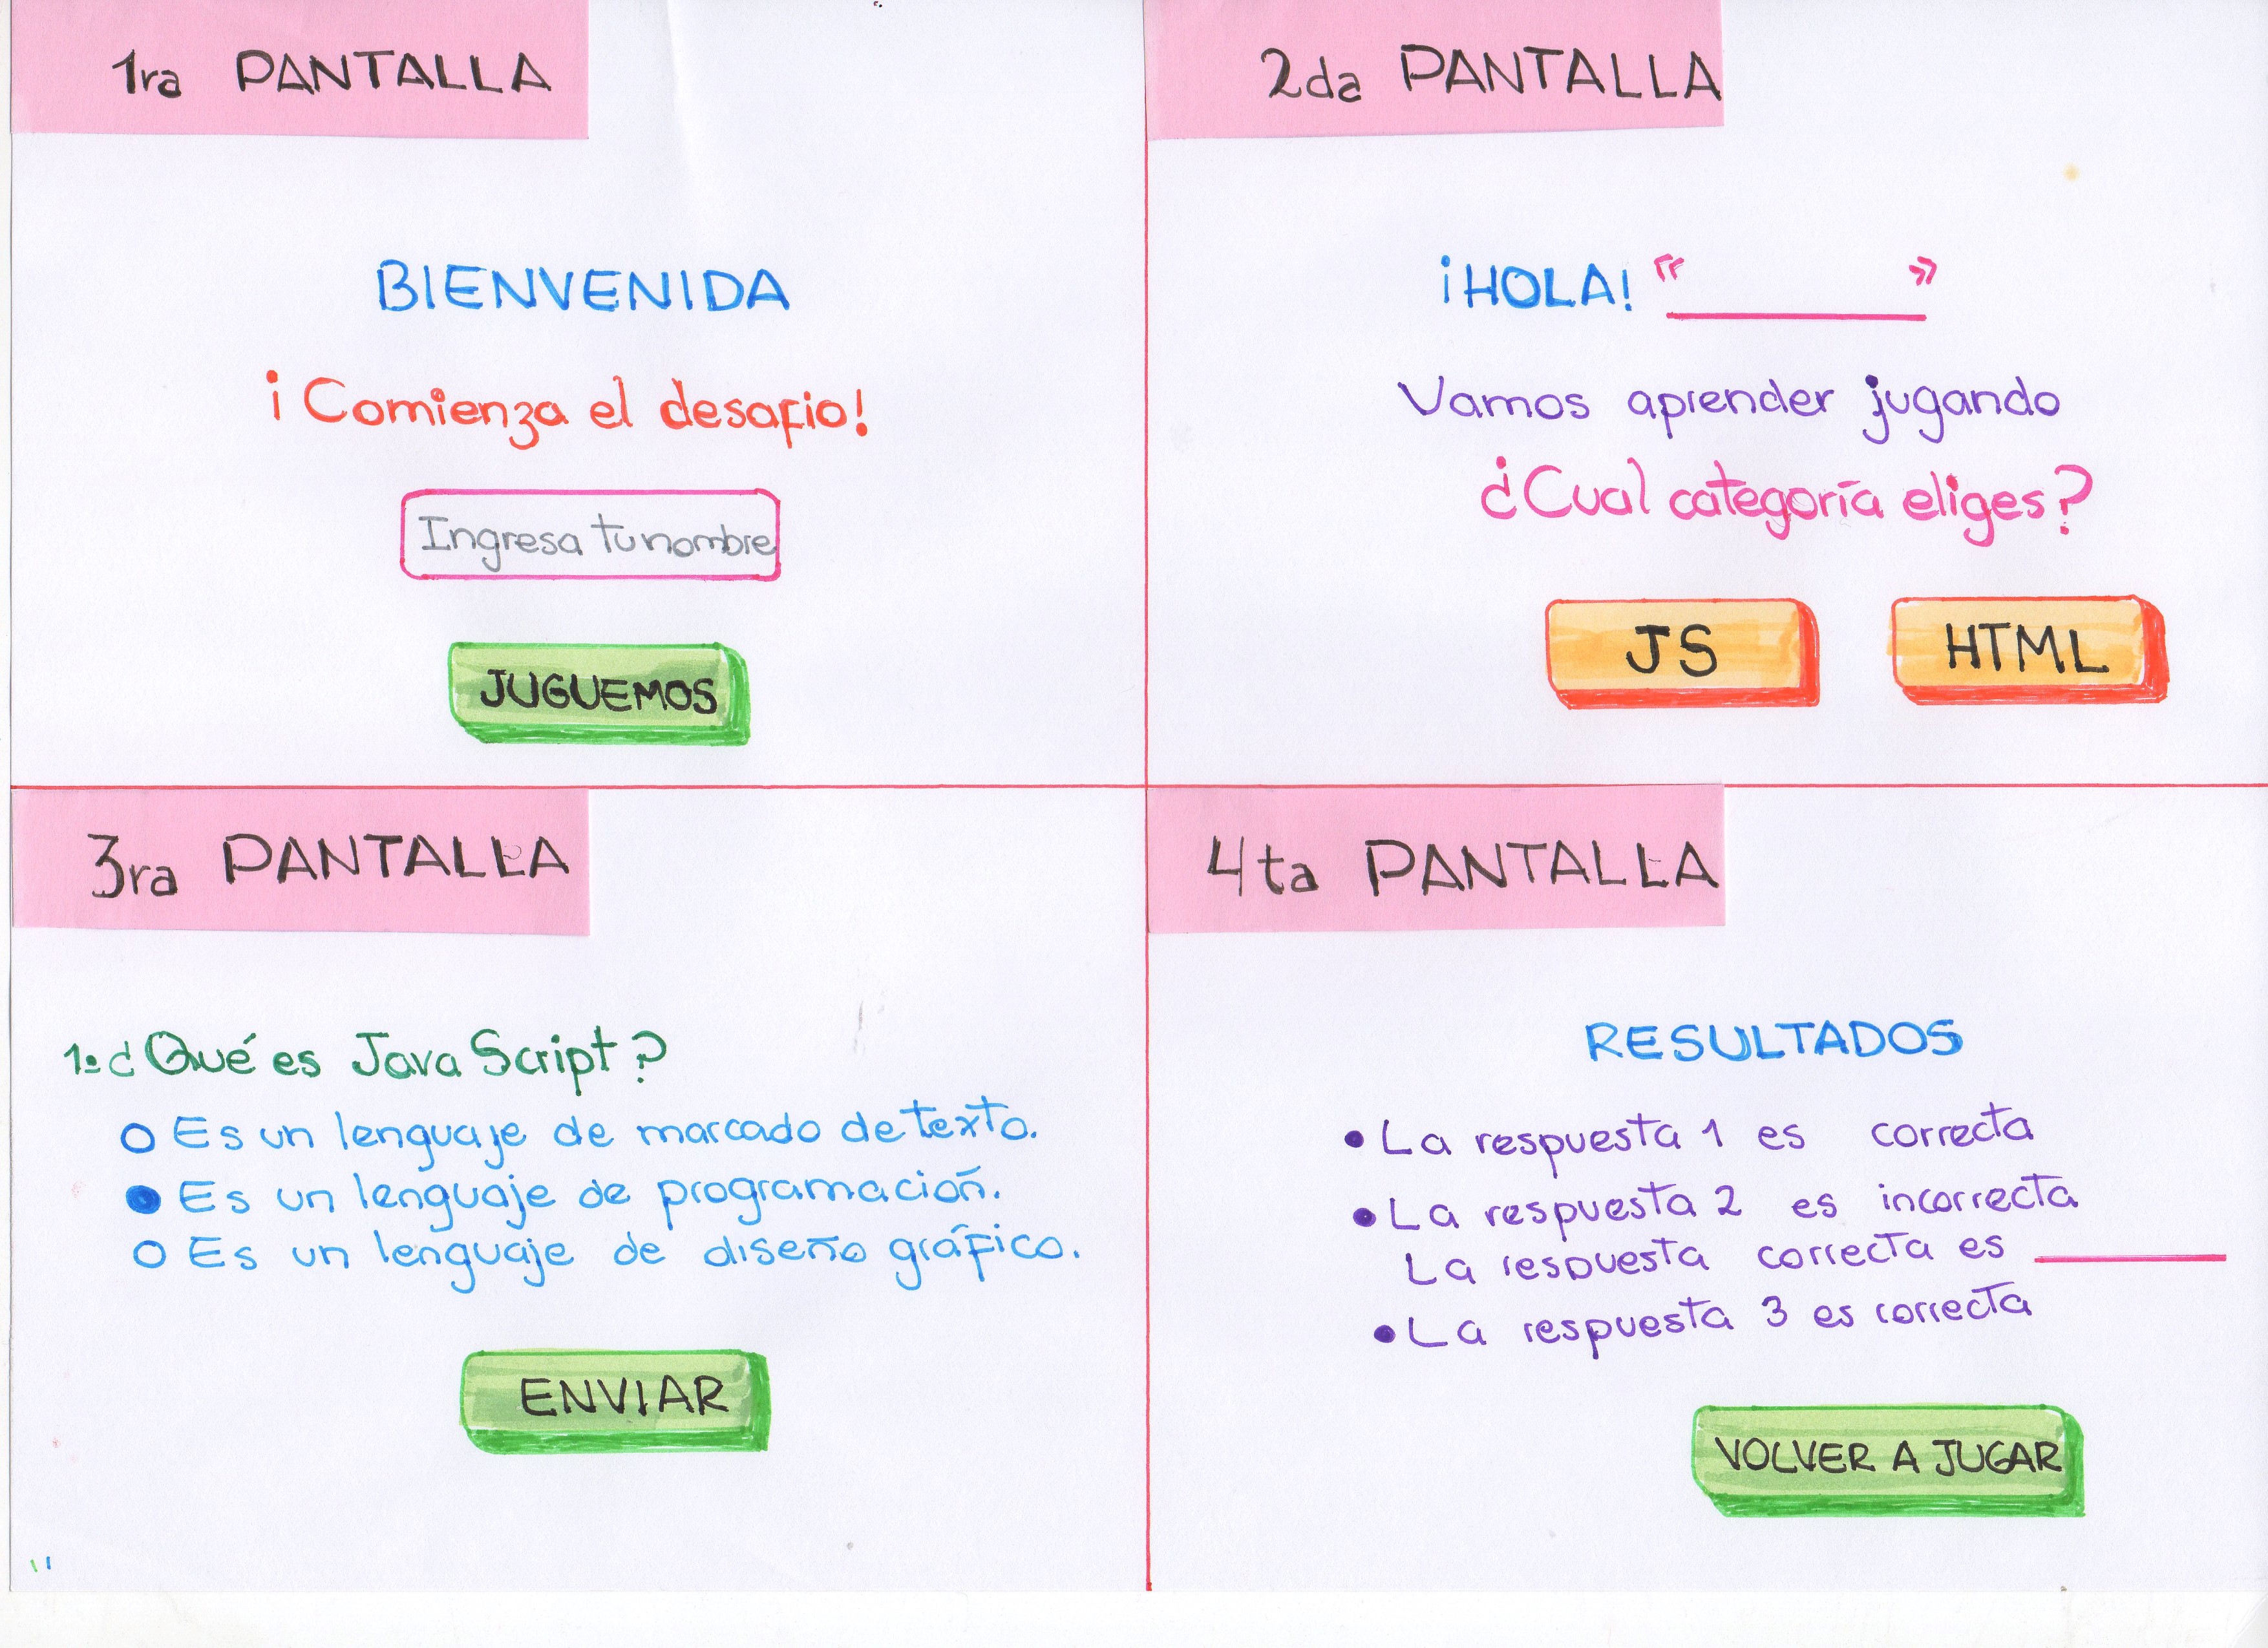 1ra PANTALLA
BIENVENIDA
¡Comienza el desafio!
Ingresa tu nombre
JUGUEMOS
2da PANTALLA
¡HOLA! “ ”
Vamos aprender jugando
¿Cual categoría eliges?
JS
HTML
3ra PANTALLA
1º ¿Qué es JavaScript?
Es un lenguaje de marcado de texto.
Es un lenguaje de programación.
Es un lenguaje de diseño gráfico.
ENVIAR
4ta PANTALLA
RESULTADOS
• La respuesta 1 es correcta
• La respuesta 2 es incorrecta
La respuesta correcta es ______
• La respuesta 3 es correcta
VOLVER A JUGAR